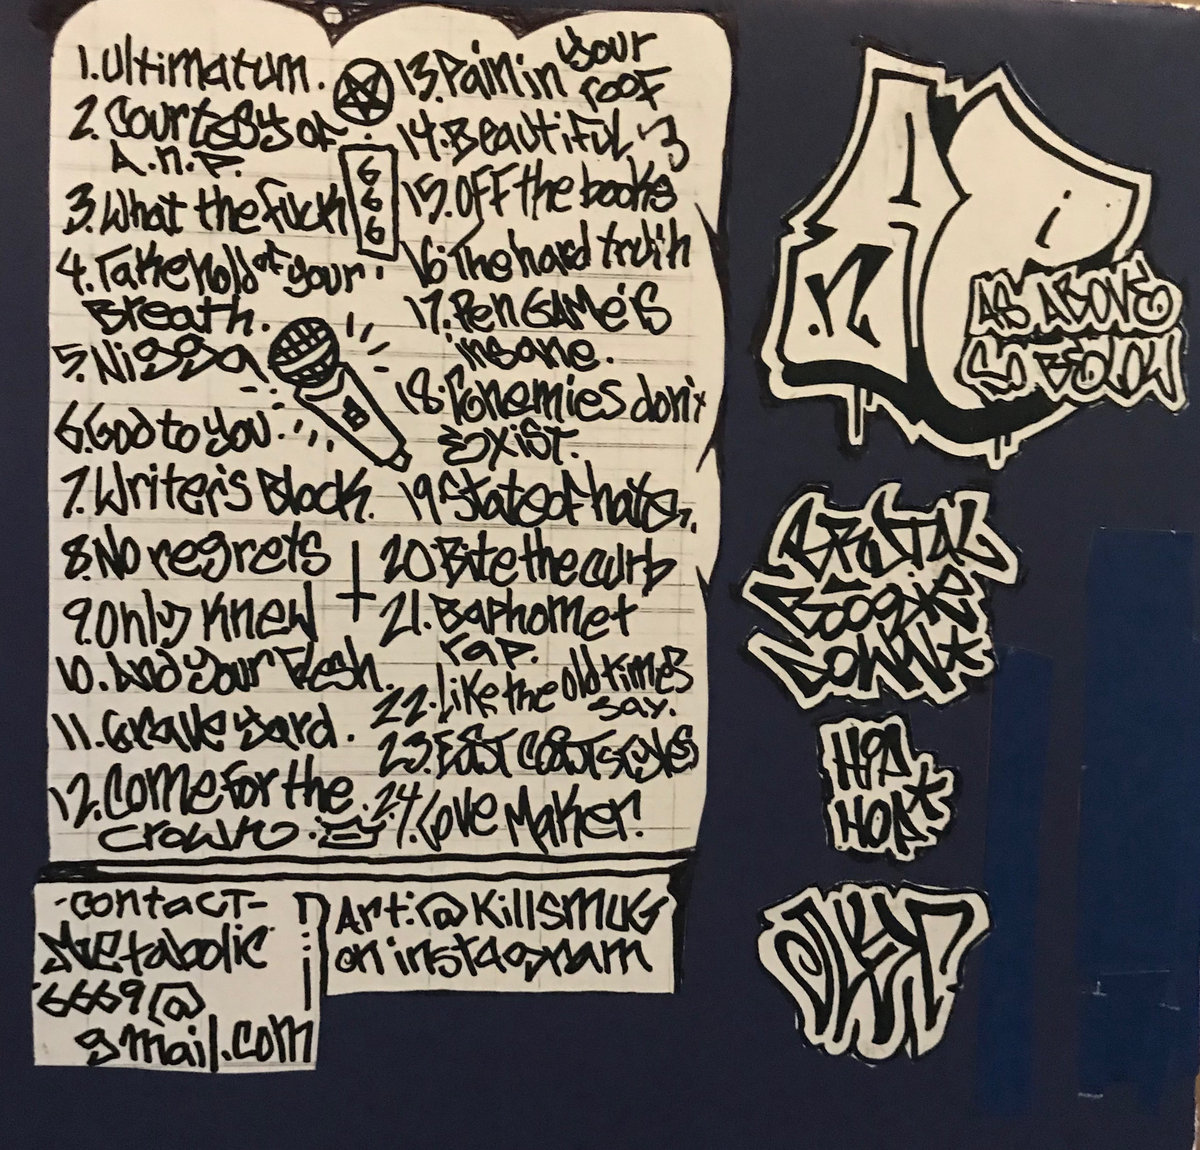 1. Ultimatum.
2. Courtesy of
A.n.p.
3. What the fuck
4. Take hold of your
Breath.
5. Nigga
6. God to you.
7. Writer's Block.
8. No regrets
9. Only Knew
10. And your Flesh.
11. Grave yard.
12. Come For the
crown.
666
13. Pain in your
roof
14. Beautiful <3
15. Off the books
16. The hard truth
17. Pen GAMe's
insane.
18. Enemies don't
Exist.
19. State of hate.
20. Bite the curb
21. Baphomet
rap.
22. Like the old times
say.
23. EAST COAST styles
24. Love Maker!
-contact-
Metabolic
6669@
gmail.com
Art: @KillSMUG
on instagram
AS ABOVE
SO BELOW
BRUTAL
BOOGIE
DOWN*
HIP
HOP*